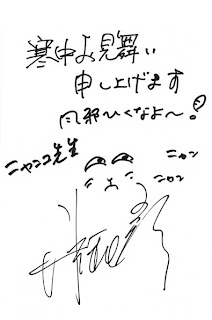 寒中お見舞い
申し上げます
風邪ひくなよ〜!
ニャンコ先生
ニャン
ニャン